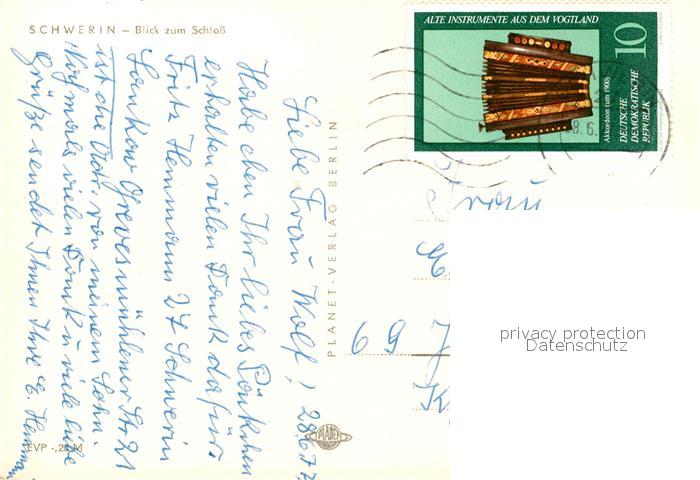 SCHWERIN – Blick zum Schloß
Liebe Frau Wolf! 28.6.77
Habe eben Ihr liebes Päckchen
erhalten vielen Dank dafür.
Fritz Hemmann 27 Schwerin
Lankow Grevesmühlener Str 21
ist die Adr. von meinem Sohn.
Nochmals vielen Dank u viele liebe
Grüße sendet Ihnen Ihre E. Hemmann
EVP -,20 M
PLANET-VERLAG BERLIN
PLANET
ALTE INSTRUMENTE AUS DEM VOGTLAND
10
Akkordeon (um 1900)
DEUTSCHE
DEMOKRATISCHE
REPUBLIK
8.6.
Frau
69
privacy protection
Datenschutz